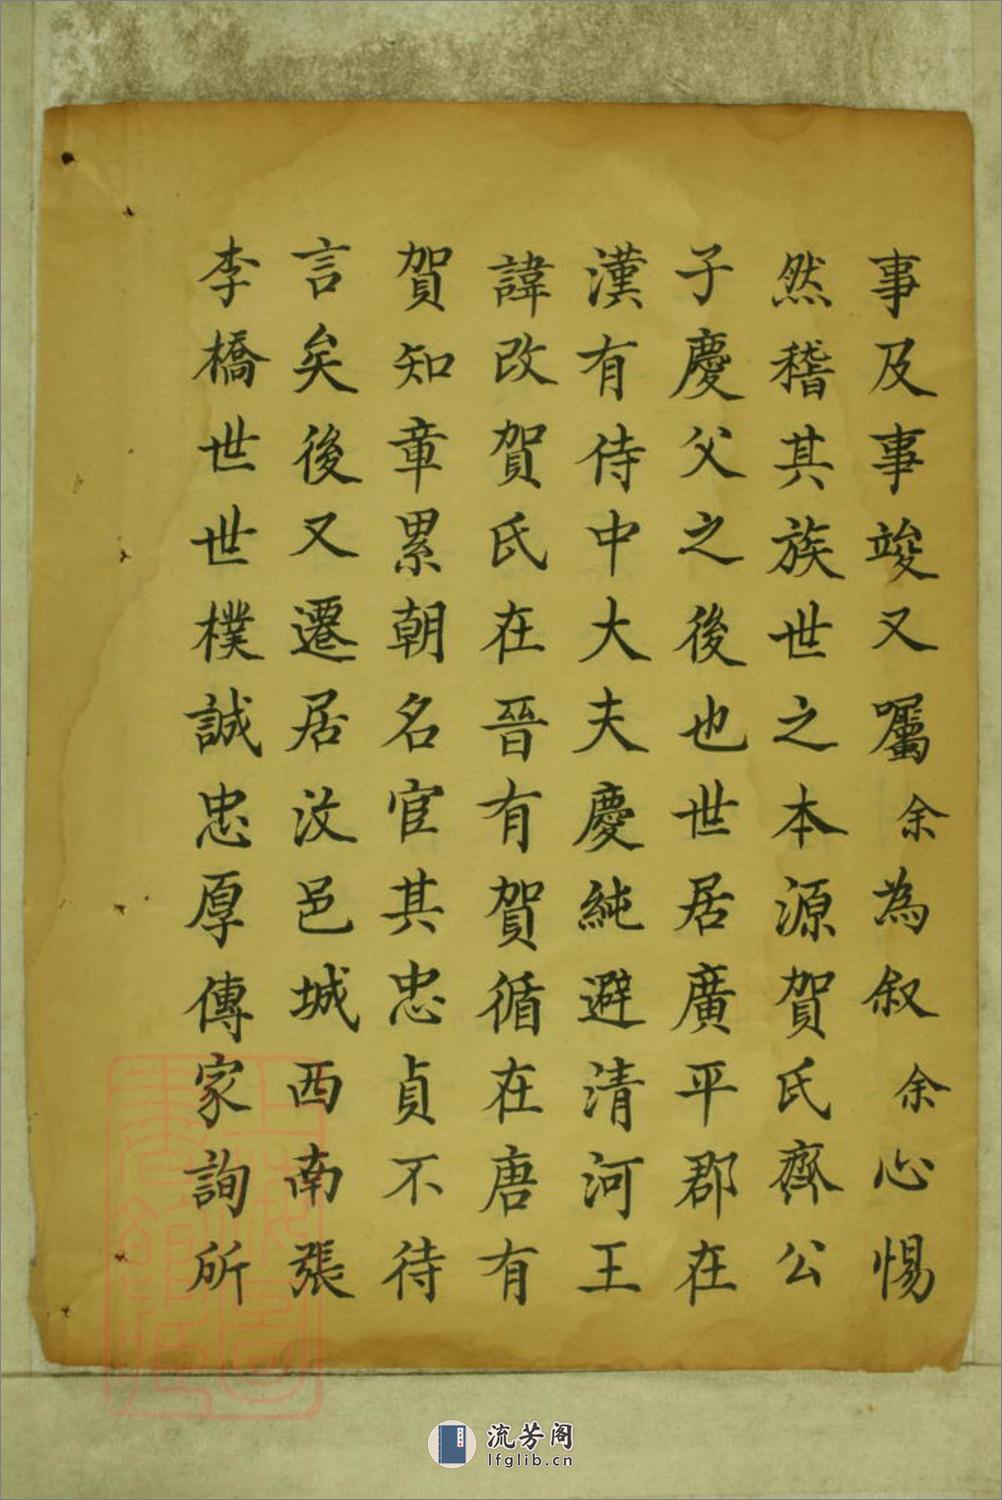 事及事竣又囑余為叙余心惕
然稽其族世之本源賀氏齊公
子慶父之後也世居廣平郡在
漢有侍中大夫慶純避清河王
諱改賀氏在晉有賀循在唐有
賀知章累朝名宦其忠貞不待
言矣後又遷居汶邑城西南張
李橋世世樸誠忠厚傳家詢所
流芳阁
lfglib.cn